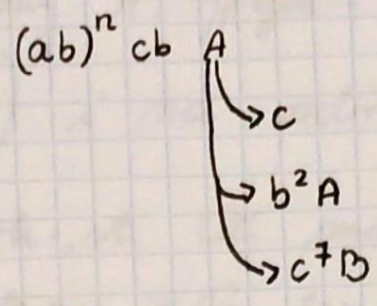 (ab)ⁿ cb A
c
b² A
c⁷ B